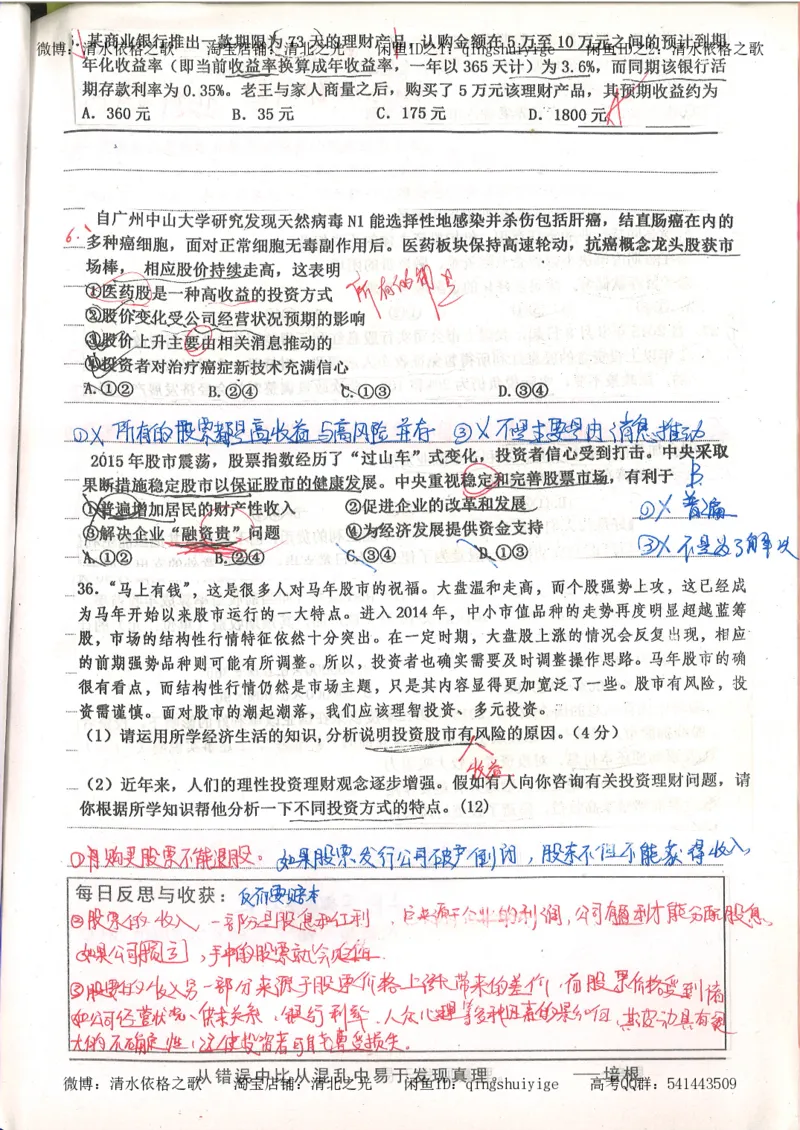 5. 某商业银行推出一款期限为 73 天的理财产品，认购金额在 5 万至 10 万元之间的预计到期
微博：清水依格之歌 淘宝店铺：清北之光 闲鱼ID之1：qingshuiyige 闲鱼ID之2：清水依格之歌
年化收益率（即当前收益率换算成年收益率，一年以 365 天计）为 3.6%，而同期该银行活
期存款利率为 0.35%。老王与家人商量之后，购买了 5 万元该理财产品，其预期收益约为
A．360 元 B．35 元 C．175 元 D．1800 元
自广州中山大学研究发现天然病毒 N1 能选择性地感染并杀伤包括肝癌，结直肠癌在内的
6.
多种癌细胞，面对正常细胞无毒副作用后。医药板块保持高速轮动，抗癌概念龙头股获市
场棒， 相应股价持续走高，这表明
①医药股是一种高收益的投资方式
所有的
②股价变化受公司经营状况预期的影响
③股价上升主要由相关消息推动的
④投资者对治疗癌症新技术充满信心
A.①② B.②④ C.①③ D.③④
①X 所有的股票都是高收益与高风险并存 ③X 不是主要是由消息推动
2015 年股市震荡，股票指数经历了“过山车”式变化，投资者信心受到打击。中央采取
果断措施稳定股市以保证股市的健康发展。中央重视稳定和完善股票市场，有利于 B
①普遍增加居民的财产性收入 ②促进企业的改革和发展
①X 普遍
③解决企业“融资贵”问题 ④为经济发展提供资金支持
③X 不是为了解决
A.①② B.②④ C.③④ D.①③
36.“马上有钱”，这是很多人对马年股市的祝福。大盘温和走高，而个股强势上攻，这已经成
为马年开始以来股市运行的一大特点。进入 2014 年，中小市值品种的走势再度明显超越蓝筹
股，市场的结构性行情特征依然十分突出。在一定时期，大盘股上涨的情况会反复出现，相应
的前期强势品种则可能有所调整。所以，投资者也确实需要及时调整操作思路。马年股市的确
很有看点，而结构性行情仍然是市场主题，只是其内容显得更加宽泛了一些。股市有风险，投
资需谨慎。面对股市的潮起潮落，我们应该理智投资、多元投资。
（1）请运用所学经济生活的知识,分析说明投资股市有风险的原因。(4 分)
收益
（2）近年来，人们的理性投资理财观念逐步增强。假如有人向你咨询有关投资理财问题，请
你根据所学知识帮他分析一下不同投资方式的特点。(12)
①购买股票不能退股。如果股票发行公司破产倒闭，股东不但不能获得收入，
每日反思与收获：反而要赔本
②股票的收入，一部分是股息和红利，它来源于企业的利润，公司有盈利才能分配股息
如果公司，手中的股票就会贬值.
③股票的收入另一部分来源于股票价格上涨带来的差价，而股票价格受到诸
如公司经营状况、供求关系、银行利率、人众心理等多种因素的影响，其波动具有很
大的不确定性，这使投资者可能蒙受损失。
从错误中比从混乱中易于发现真理。 ——培根
微博：清水依格之歌 淘宝店铺：清北之光 闲鱼ID：qingshuiyige 高考QQ群：541443509